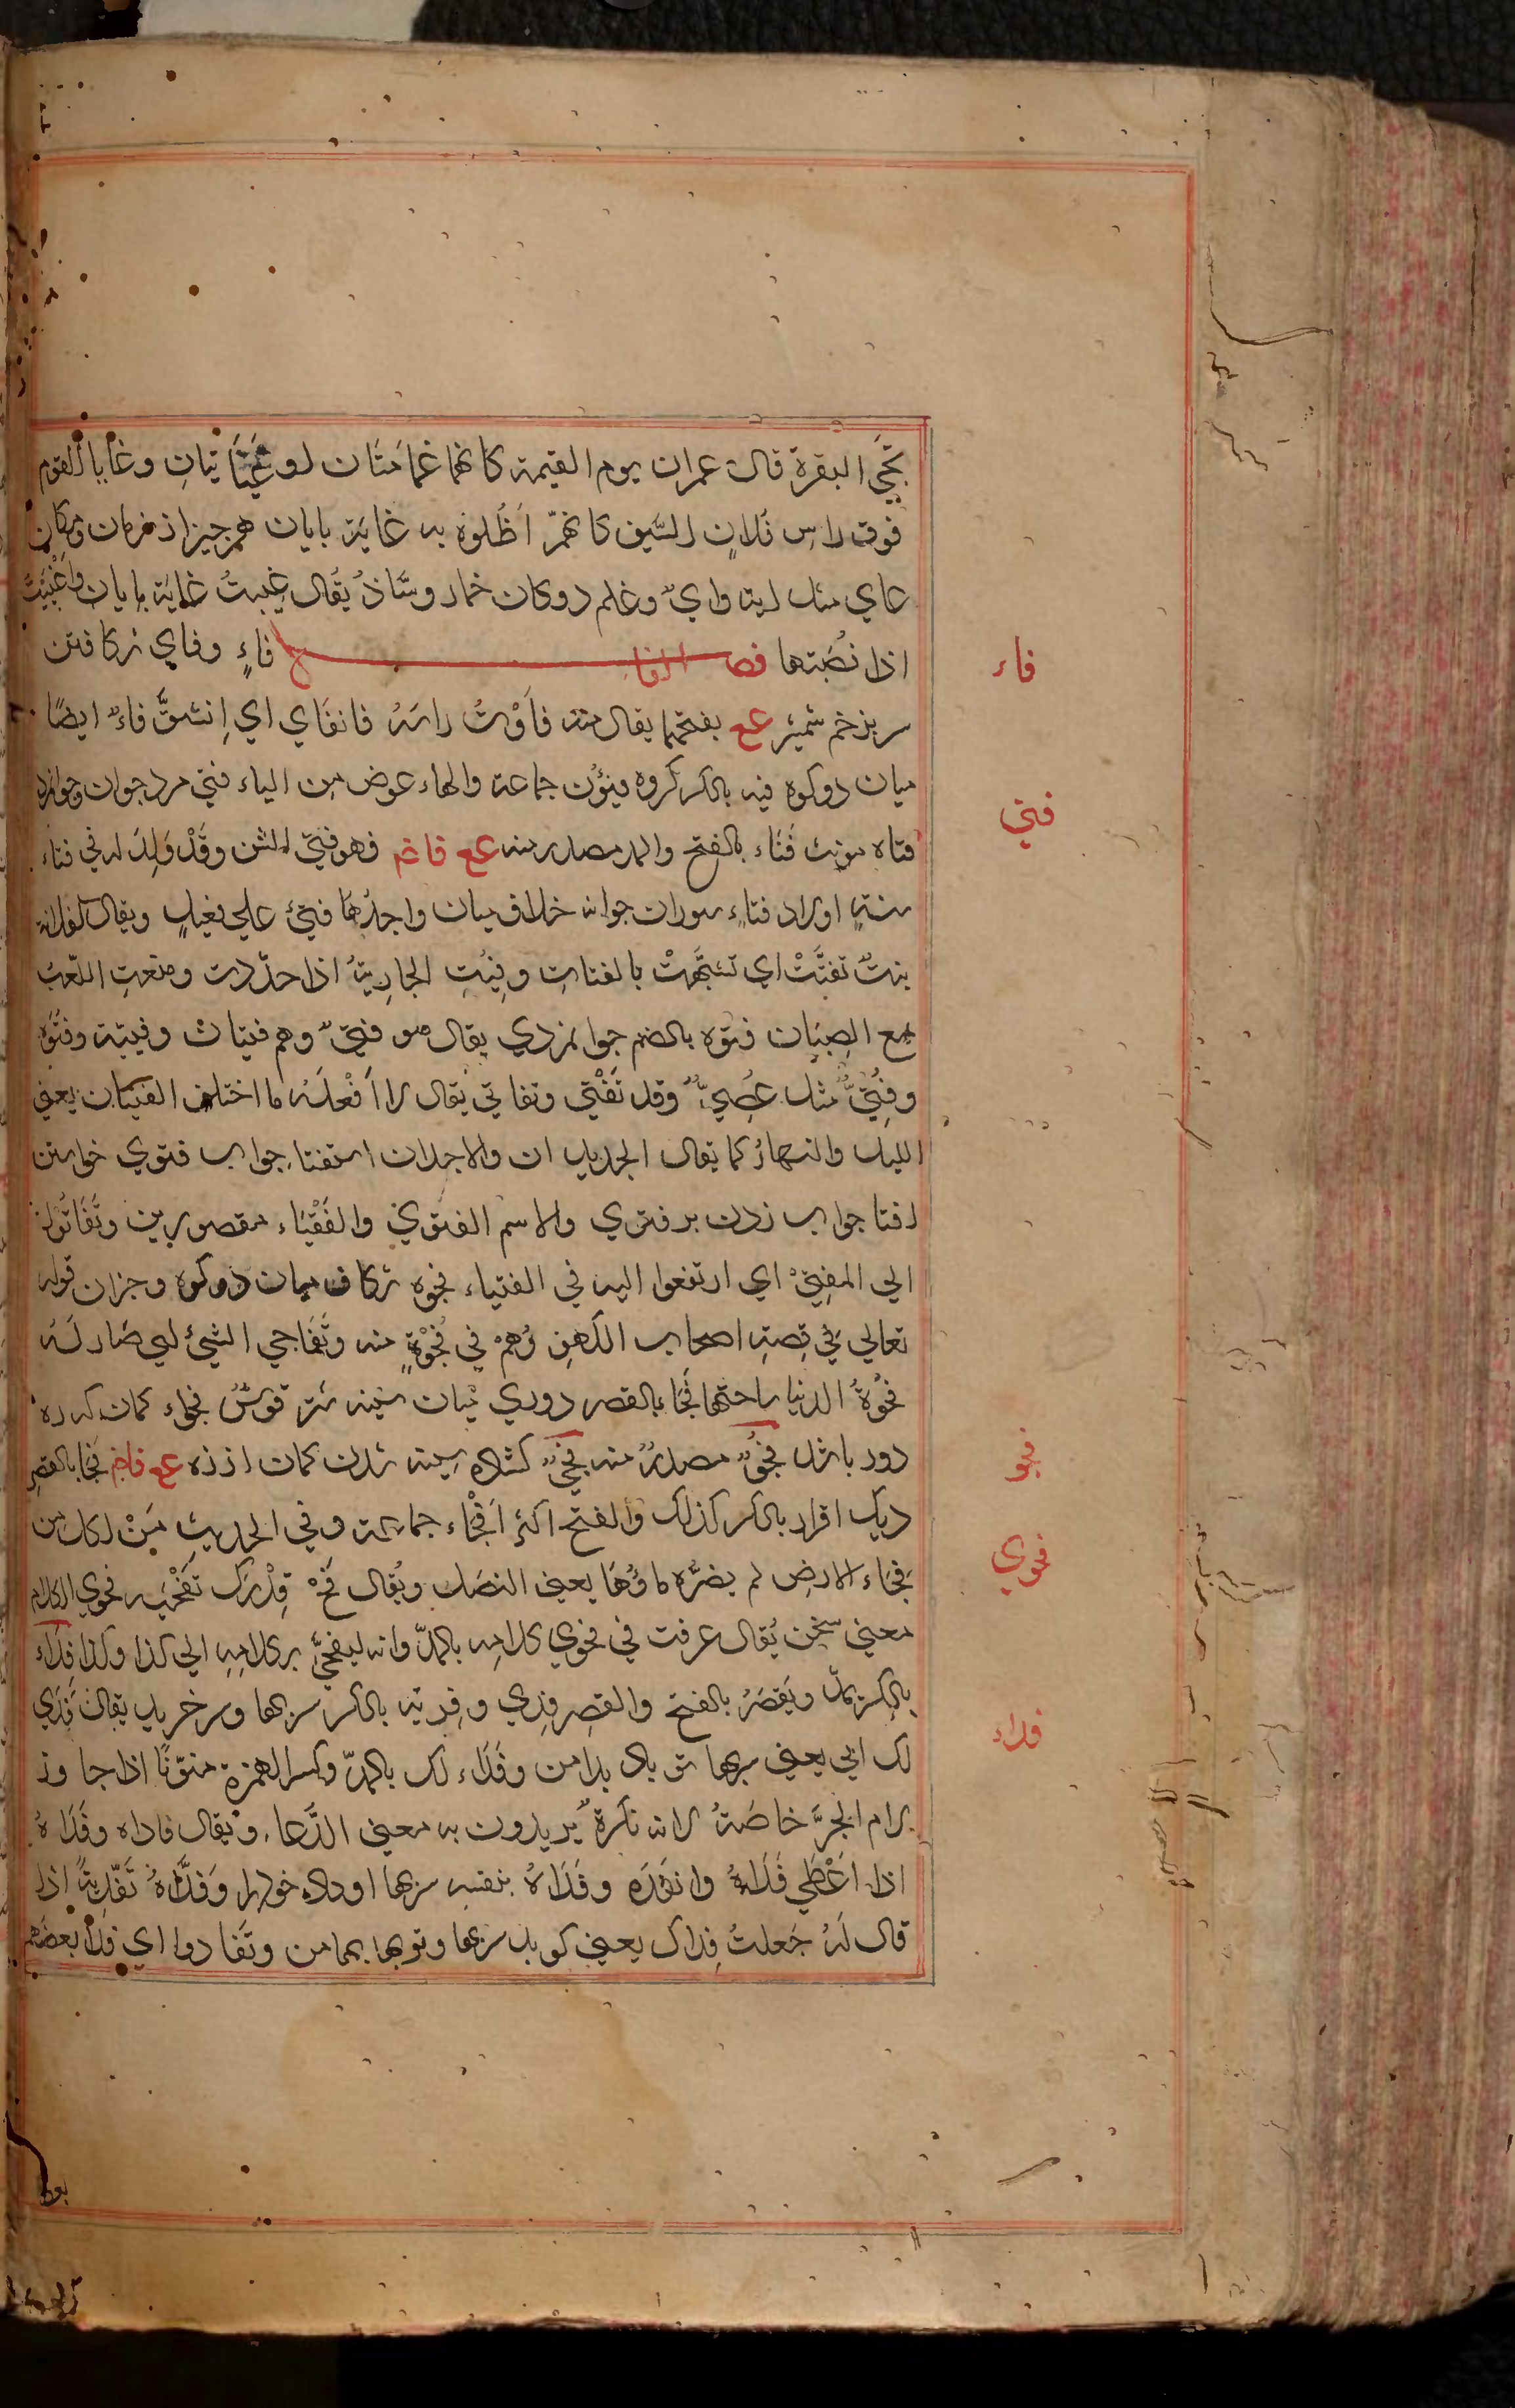 تجئ البقرة قال عمران يوم القيمة كانهما غمامتان او غيايتان وغايا القوم
فوق راس فلان السيف كانهم اظلوه به غاية پايان همه چيز از زمان ومكان
غاي مثل اية واي وعلم دوكان خمار وستاذ يقال غييت غاية پايان واغييت
اذا نصبتها فصل الفا فاء وفاي شكافتن
سر بزخم شمشير عع بفتحهما يقال منه فاوت راسه فانفاي اي انشق فاء ايضا
ميان دو كوه فيه بالكسر كروه فيئون جماعة والهاء عوض من الياء فتي مرد جوان وجوانمرد
فتاه مونث فتاء بالفتح والمد مصدر منه عع فاغم فهو فتي السن وقد ولد له في فتاء
سنه اولاد فتاء سوران جوانه خلاف مسان واحدها فتئ علي فعيل ويقال لفلانة
بنت تفتت اي تشبهت بالفتات وفتيت الجارية اذا خدرت ومنعت اللعب
مع الصبيان فتوه بالضم جوانمردي يقال هو فتي وهم فتيان وفتية وفتوه
وفتي مثل عصي وقد تفتي وتفاتي يقال لا افعله ما اختلف الفتيان يعني
الليل والنهار كما يقال الجديدان والاجدان استفتا جواب فتوي خواستن
افتا جواب زدن بر فتوي والاسم الفتوي والفتياء مقصورين وتفاتوا
الي المفتي اي ارتفعوا اليه في الفتياء فجوه شكاف ميان دو كوه وجز ان قوله
تعالي في قصة اصحاب الكهف وهم في فجوة منه وتفاجي الشئ اي صار له
فجوة الدنيا ساحتها فجاء بالقصر دوري ميان سينه شتر قوس فجواء كمان كه زه
دور باشد فجو مصدر منه فجي كشاده سينه شدن كمان از زه عع فاغم فجا بالقصر
ديك افزار بالكسر كذلك والفتح اكثر افحاء جماعة وفي الحديث من اكل من
فحاء الارض لم يضره ماؤها يعني البصل ويقال فح قدرك تفحيه فحوي الكلام
معني سخن يقال عرفت في فحوي كلامه بالمد وانه ليفحي بكلامه الي كذا وكذا فداء
بالكسر يمد ويقصر بالفتح والقصر فدي وفديه بالكسر سربها وسرخريد يقال فدي
لك ابي يعني سربها تو باد پدر من وفداء لك بالمد وكسر الهمزة منونا اذا جاور
لام الجر خاصة لانه نكرة يريدون به معني الدعاء ويقال فاداه وفداه
اذا اعطي فداءه وانقذه وفداه بنفسه سربها او داد خود را وفداه تفدية اذا
قال له جعلت فداك يعني كويد سربها وتوبها بها من وتفادوا اي فدا بعضهم
فاء
فتي
فجو
فحوي
فداء